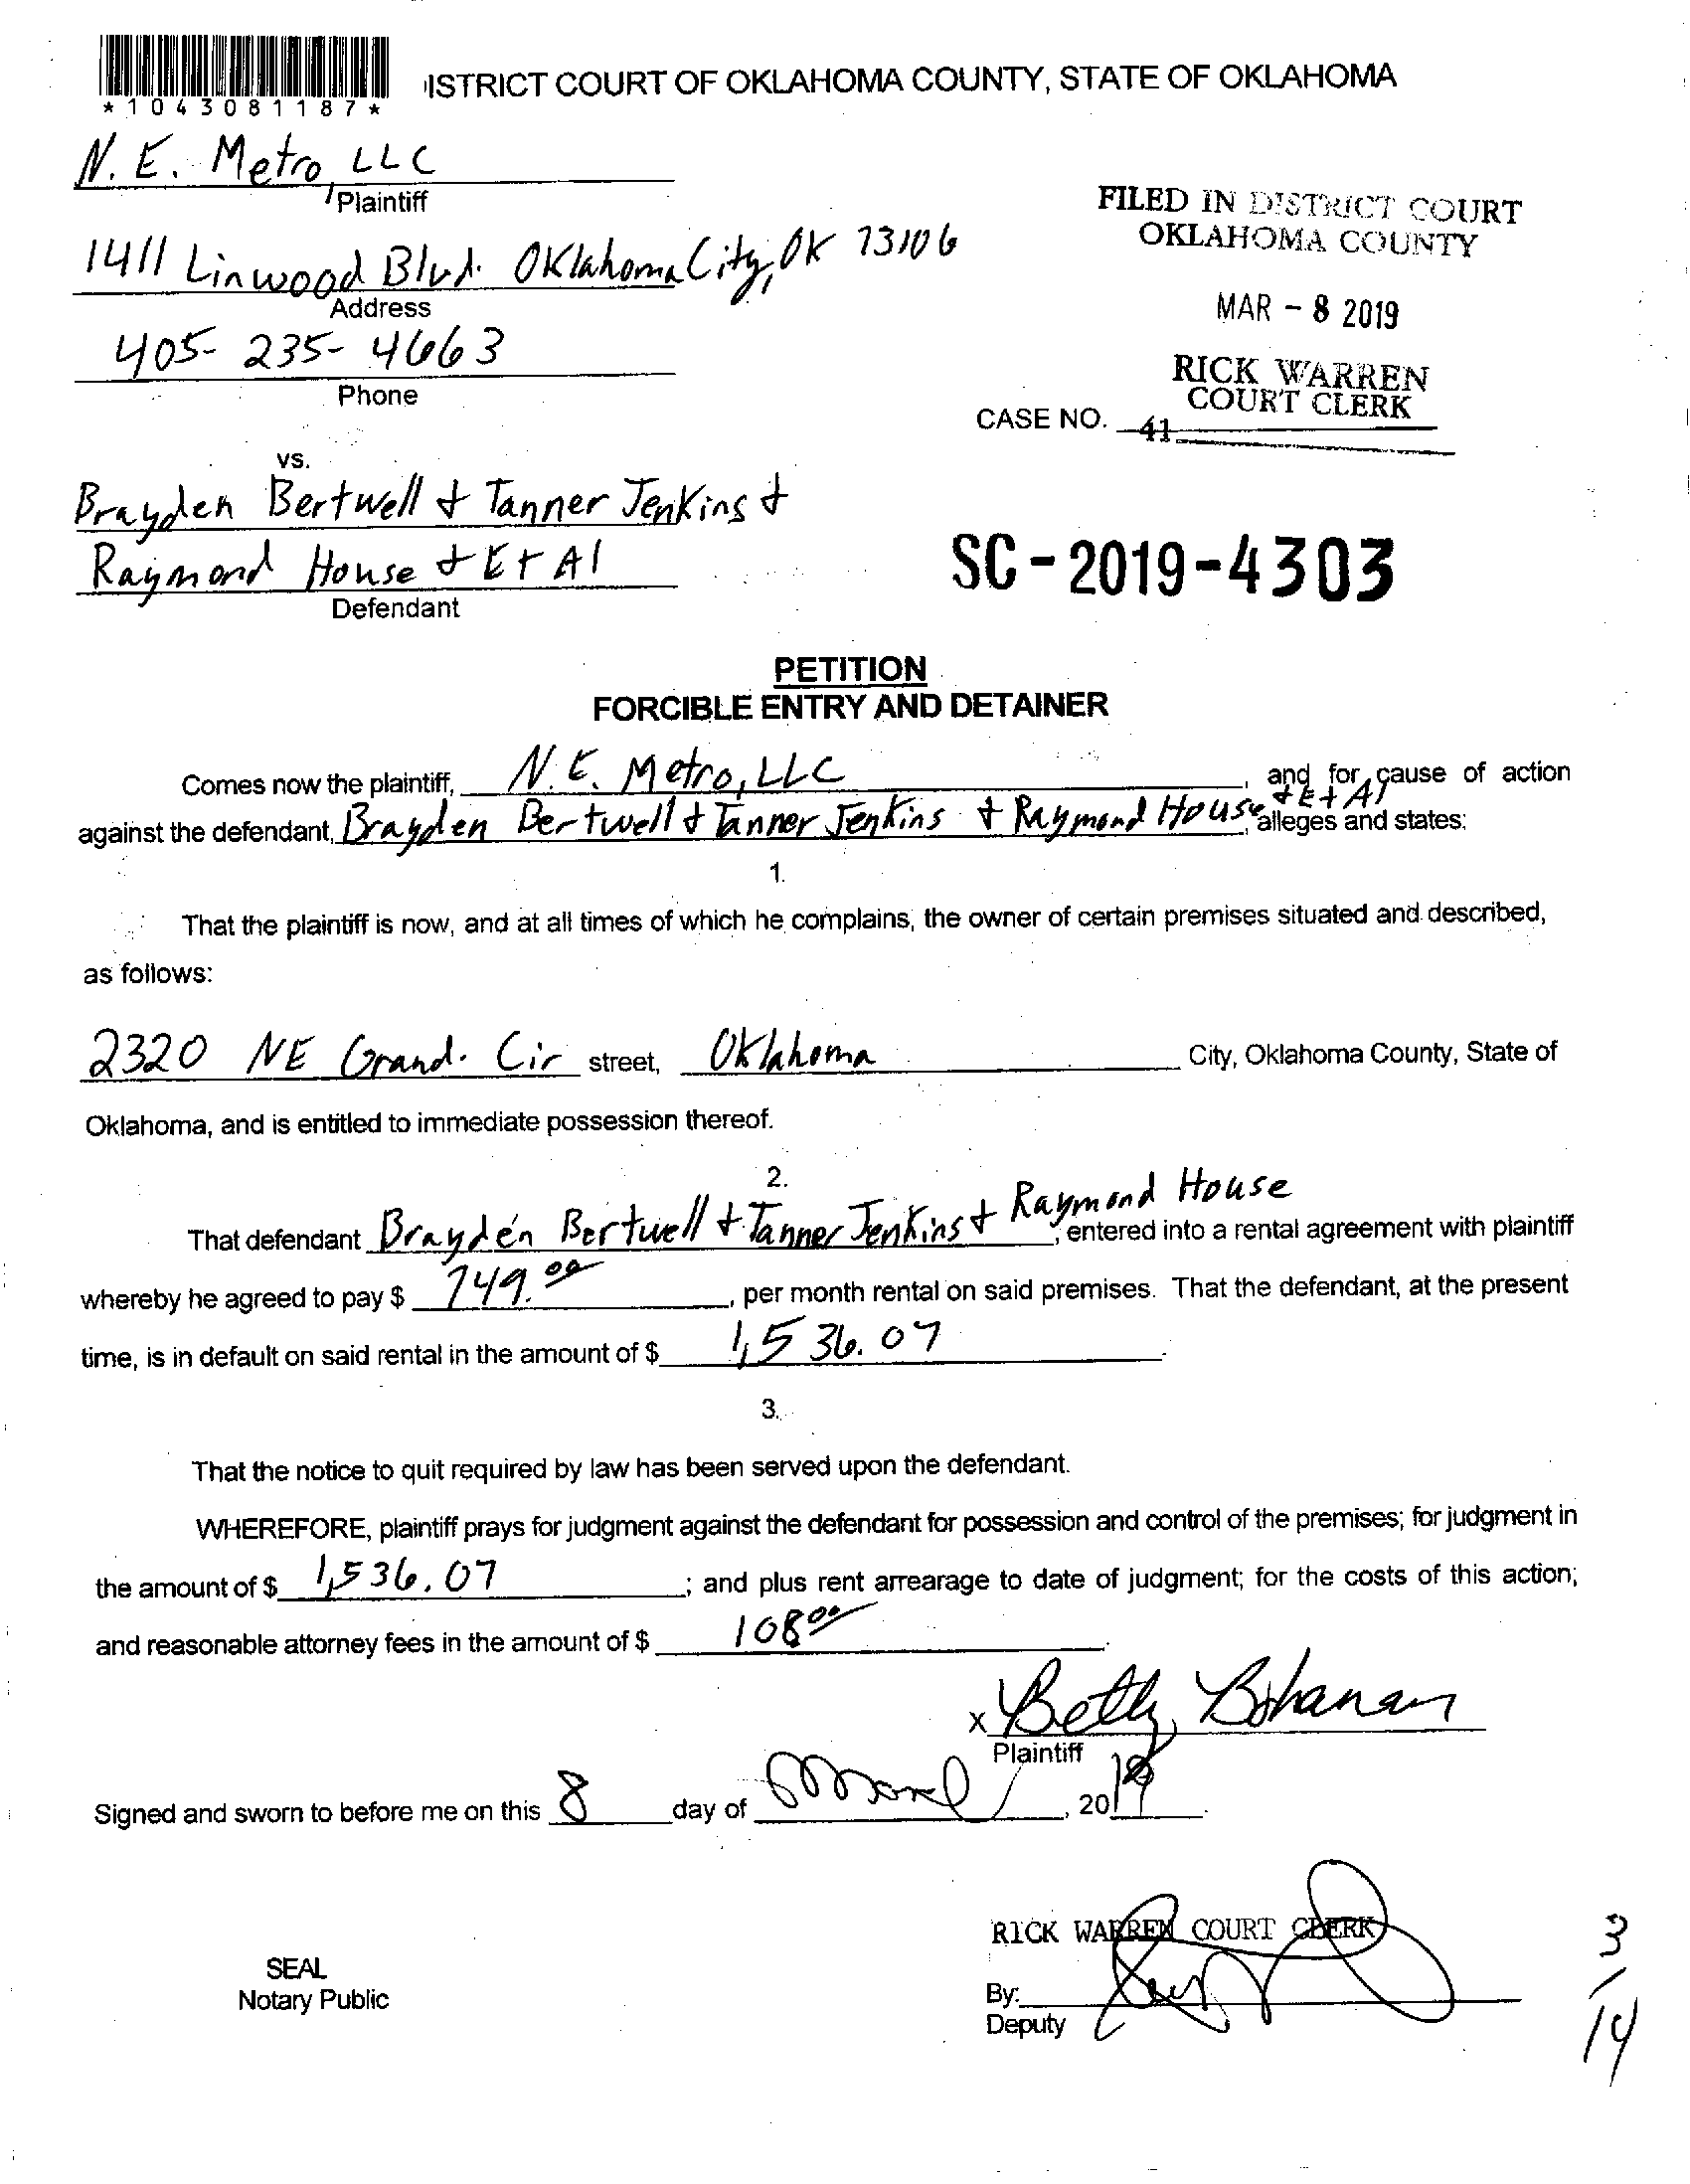 *1043081187*
ISTRICT COURT OF OKLAHOMA COUNTY, STATE OF OKLAHOMA
N. E. Metro, LLC
Plaintiff
1411 Linwood Blvd. Oklahoma City, OK 73106
Address
405-235-4663
Phone
FILED IN DISTRICT COURT
OKLAHOMA COUNTY
MAR - 8 2019
RICK WARREN
COURT CLERK
CASE NO. 41
vs.
Brayden Bertwell + Tanner Jenkins +
Raymond House + Et Al
Defendant
SC-2019-4303
PETITION
FORCIBLE ENTRY AND DETAINER
Comes now the plaintiff, N.E. Metro, LLC, and for cause of action
against the defendant, Brayden Bertwell + Tanner Jenkins + Raymond House + Et Al, alleges and states:
1.
That the plaintiff is now, and at all times of which he complains, the owner of certain premises situated and described,
as follows:
2320 NE Grand. Cir street, Oklahoma City, Oklahoma County, State of
Oklahoma, and is entitled to immediate possession thereof.
2.
That defendant Brayden Bertwell + Tanner Jenkins + Raymond House, entered into a rental agreement with plaintiff
whereby he agreed to pay $ 749.00, per month rental on said premises. That the defendant, at the present
time, is in default on said rental in the amount of $ 1,536.07.
3.
That the notice to quit required by law has been served upon the defendant.
WHEREFORE, plaintiff prays for judgment against the defendant for possession and control of the premises; for judgment in
the amount of $ 1,536.07; and plus rent arrearage to date of judgment; for the costs of this action;
and reasonable attorney fees in the amount of $ 108.00.
x Betty Bohanan
Plaintiff
Signed and sworn to before me on this 8 day of March, 2019.
RICK WARREN COURT CLERK
SEAL
Notary Public
By:
Deputy
3/14